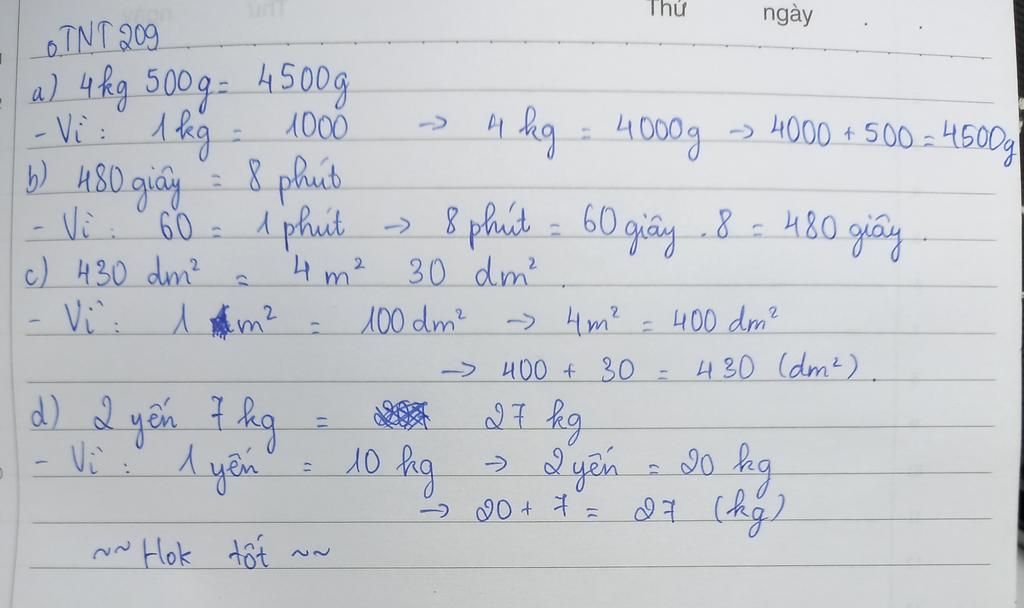 Thứ ngày . .
o TNT 209
a) 4kg 500g = 4500g
- Vì : 1 kg = 1000 → 4 kg = 4000g → 4000 + 500 = 4500g
b) 480 giây = 8 phút
- Vì : 60 = 1 phút → 8 phút = 60 giây . 8 = 480 giây .
c) 430 dm² = 4 m² 30 dm² .
- Vì : 1 m² = 100 dm² → 4m² = 400 dm²
→ 400 + 30 = 430 (dm²) .
d) 2 yến 7 kg = 27 kg
- Vì : 1 yến = 10 kg → 2 yến = 20 kg
→ 20 + 7 = 27 (kg)
~~ Hok tốt ~~